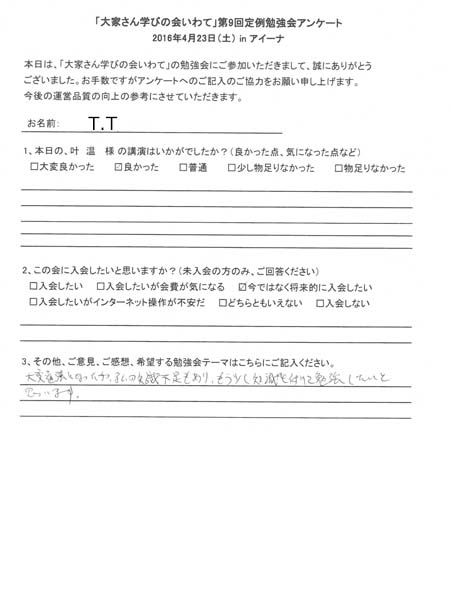 「大家さん学びの会いわて」第9回定例勉強会アンケート
2016年4月23日(土) in アイーナ
本日は、「大家さん学びの会いわて」の勉強会にご参加いただきまして、誠にありがとう
ございました。お手数ですがアンケートへのご記入のご協力をお願い申し上げます。
今後の運営品質の向上の参考にさせていただきます。
お名前: T.T
1、本日の、叶 温 様 の講演はいかがでしたか?(良かった点、気になった点など)
□大変良かった ☑良かった □普通 □少し物足りなかった □物足りなかった
2、この会に入会したいと思いますか?(未入会の方のみ、ご回答ください)
□入会したい □入会したいが会費が気になる ☑今ではなく将来的に入会したい
□入会したいがインターネット操作が不安だ □どちらともいえない □入会しない
3、その他、ご意見、ご感想、希望する勉強会テーマはこちらにご記入ください。
大変 となったが、私の知識不足もあり、もう少し知識を付けて勉強したいと
思います。